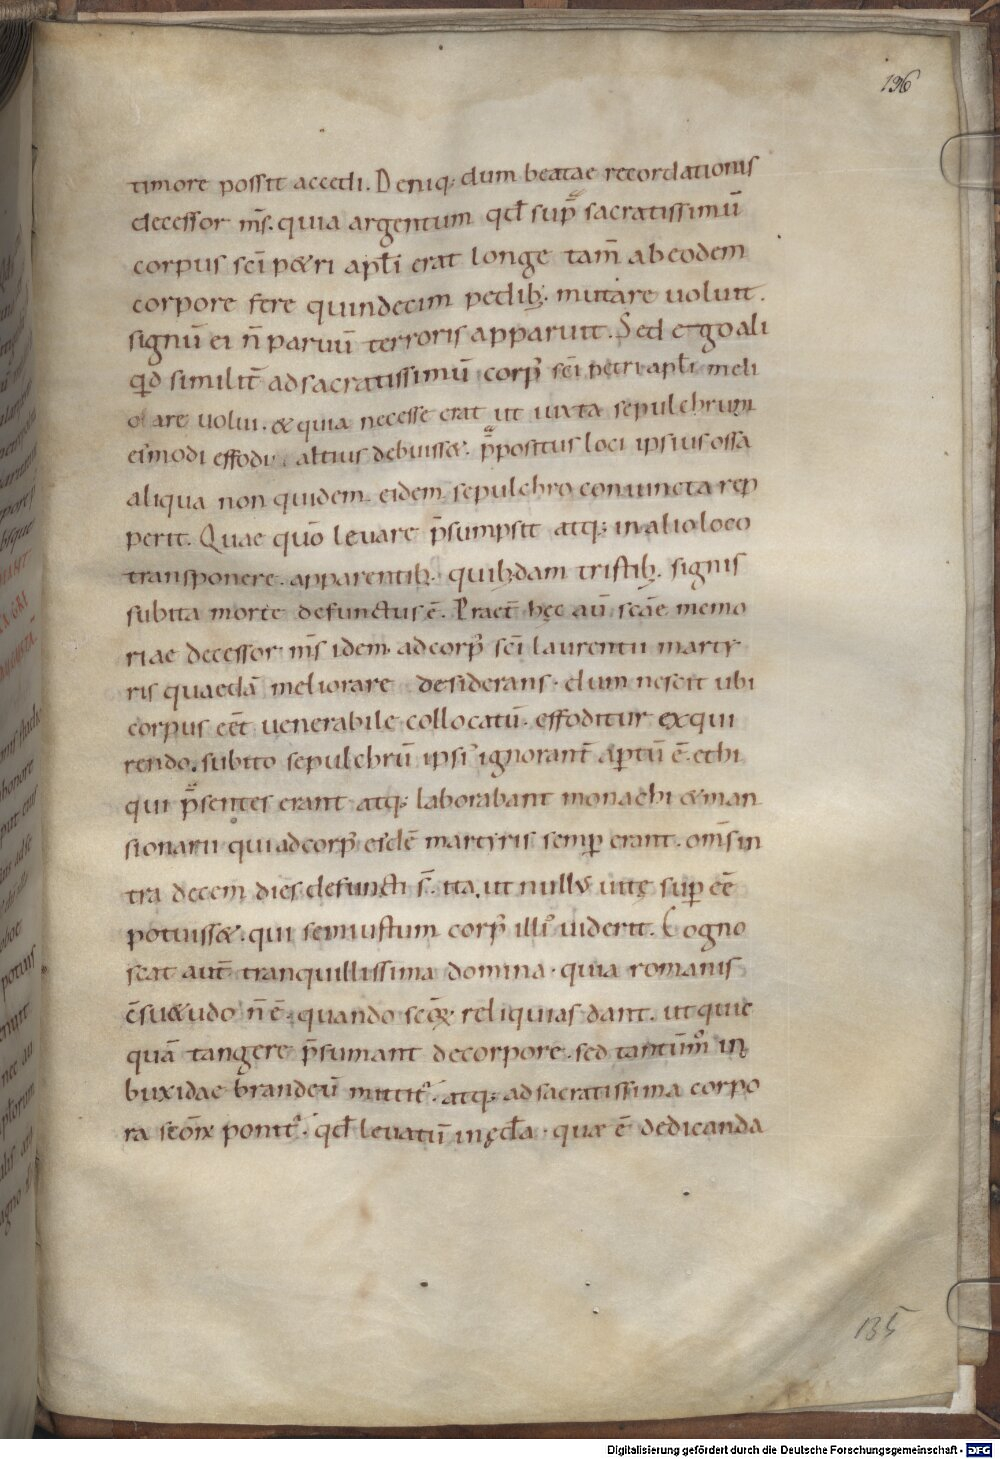 196
timore possit accedi. Deniq; dum beatae recordationis
decessor m̅s. quia argentum qd̅ sup̅ sacratissimu̅
corpus sci̅ p&ri apl̅i erat longe tam̅ ab eodem
corpore fere quindecim pedib; mutare uoluit.
signu̅ ei n̅ paruu̅ terroris apparuit. Sed et ego ali
qd̅ similit̅ ad sacratissimu̅ corp᾿ sci̅ petri apl̅i meli
orare uolui. & quia necesse erat ut iuxta sepulchrum
ei᾿modi effodi altius debuiss&. p̅positus loci ipsius ossa
aliqua non quidem eidem sepulchro coniuncta rep
perit. Quae quo̅ leuare p̅sumpsit atq; in alio loco
transponere. apparentib; quib;dam tristib; signis
subita morte defunctus e̅. Praet̅ hęc au̅ sc̅ae memo
riae decessor m̅s idem. ad corp᾿ sci̅ laurentii marty
ris quaeda̅ meliorare desiderans. dum nescit ubi
corpus ee̅t uenerabile collocatu̅. effoditur exqui
rendo. subito sepulchru̅ ipsi᾿ ignorant̅ ap̱tu̅ e̅. et hi
qui p̅sentes erant atq; laborabant monachi & man
sionarii qui ad corp᾿ ei᾿de̅ martyris semp̱ erant. om̅s in
tra decem dies defuncti s̅. ita. ut null᾿ uitę sup̱ee̅
potuiss&. qui semiustum corp᾿ illi᾿ uiderit. Cogno
scat aut̅ tranquillissima domina. quia romanis
c̅su&udo n̅ e̅. quando sco̅ꝝ reliquias dant. ut quic
qua̅ tangere p̅sumant de corpore. sed tantu̅m᾿ in
buxidae brandeu̅ mittit᾿. atq; ad sacratissima corpo
ra sco̅ꝝ ponit᾿. qd̅ leuatu̅ in ęcl̅a. quae e̅ dedicanda
135
Digitalisierung gefördert durch die Deutsche Forschungsgemeinschaft - DFG